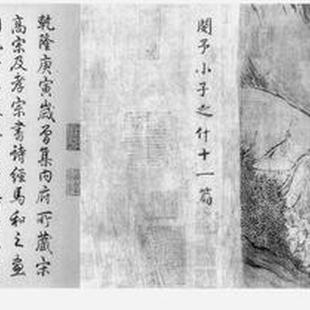 閔予小子之什十一篇
乾隆庚寅歲曾集內府所藏宋
高宗及孝宗書詩經馬和之畫